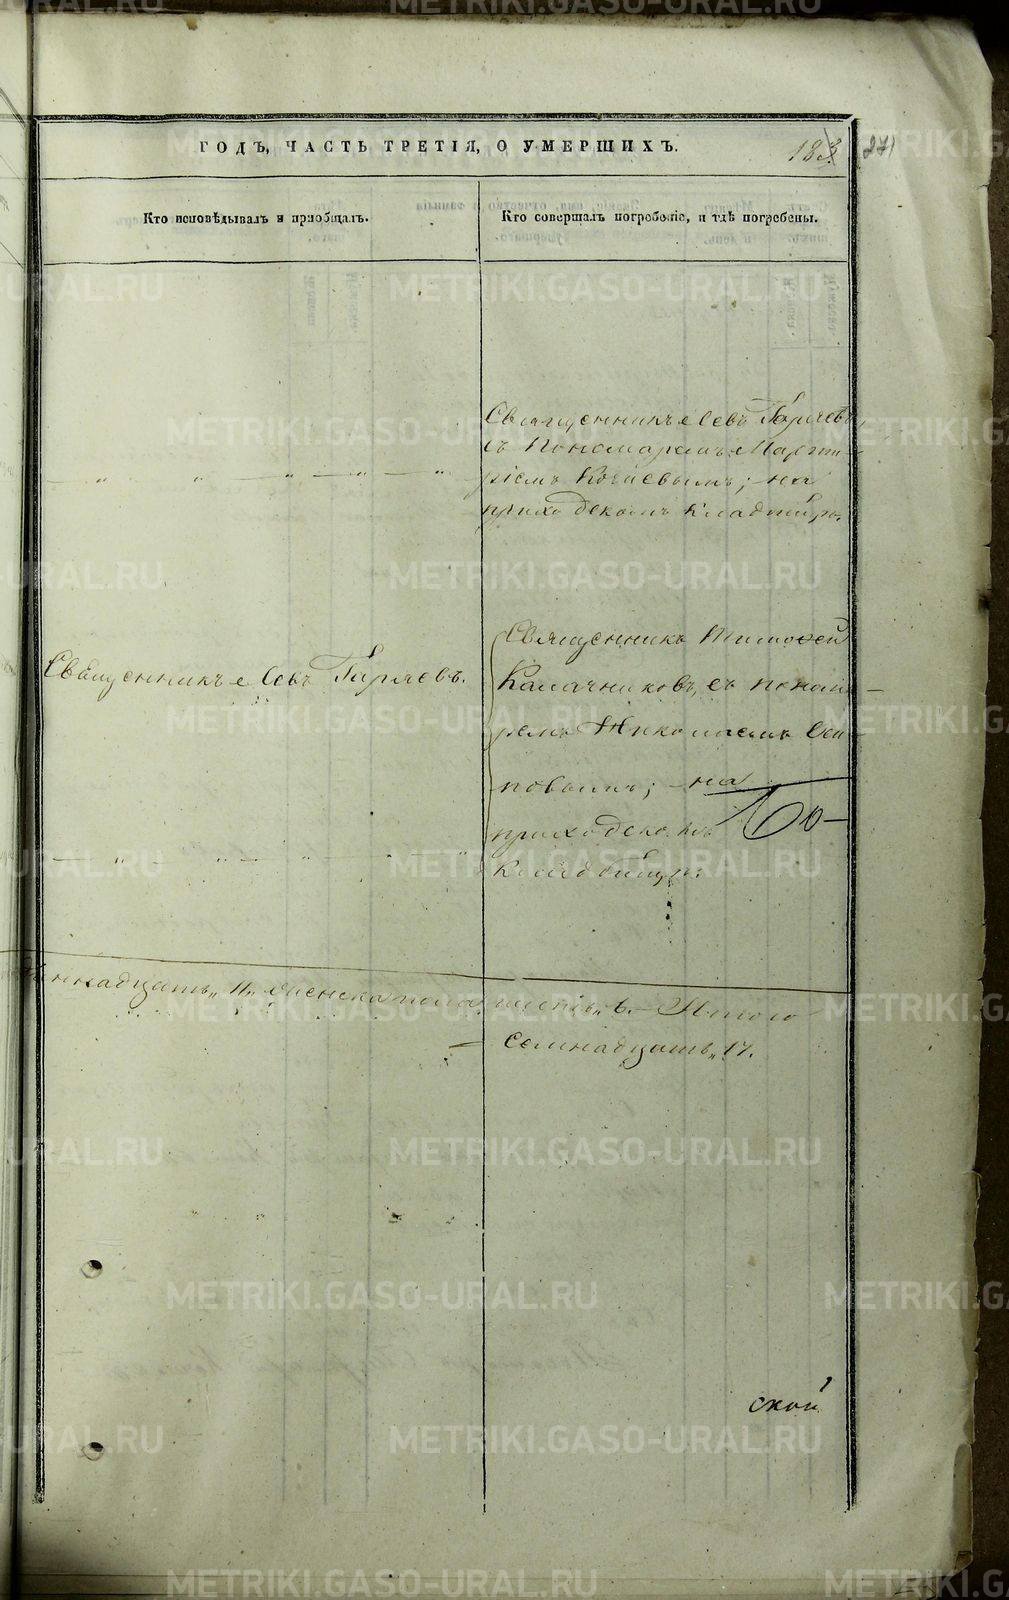 ГОДЪ, ЧАСТЬ ТРЕТІЯ, О УМЕРШИХЪ.
Кто исповѣдывалъ и пріобщалъ.
Кто совершалъ погребеніе, и гдѣ погребены.
Священникъ Левъ
съ Пономаремъ Марти-
ріемъ ; на
приходскомъ кладбищѣ.
Священникъ Левъ
Священникъ Тимоѳей
Калачниковъ, съ понома-
ремъ Николаемъ Оси
повымъ; на
приходскомъ
кладбищѣ.
надцать „11„ женска пола шесть „6.- Итого
Семнадцать „17.
ской
METRIKI.GASO-URAL.RU